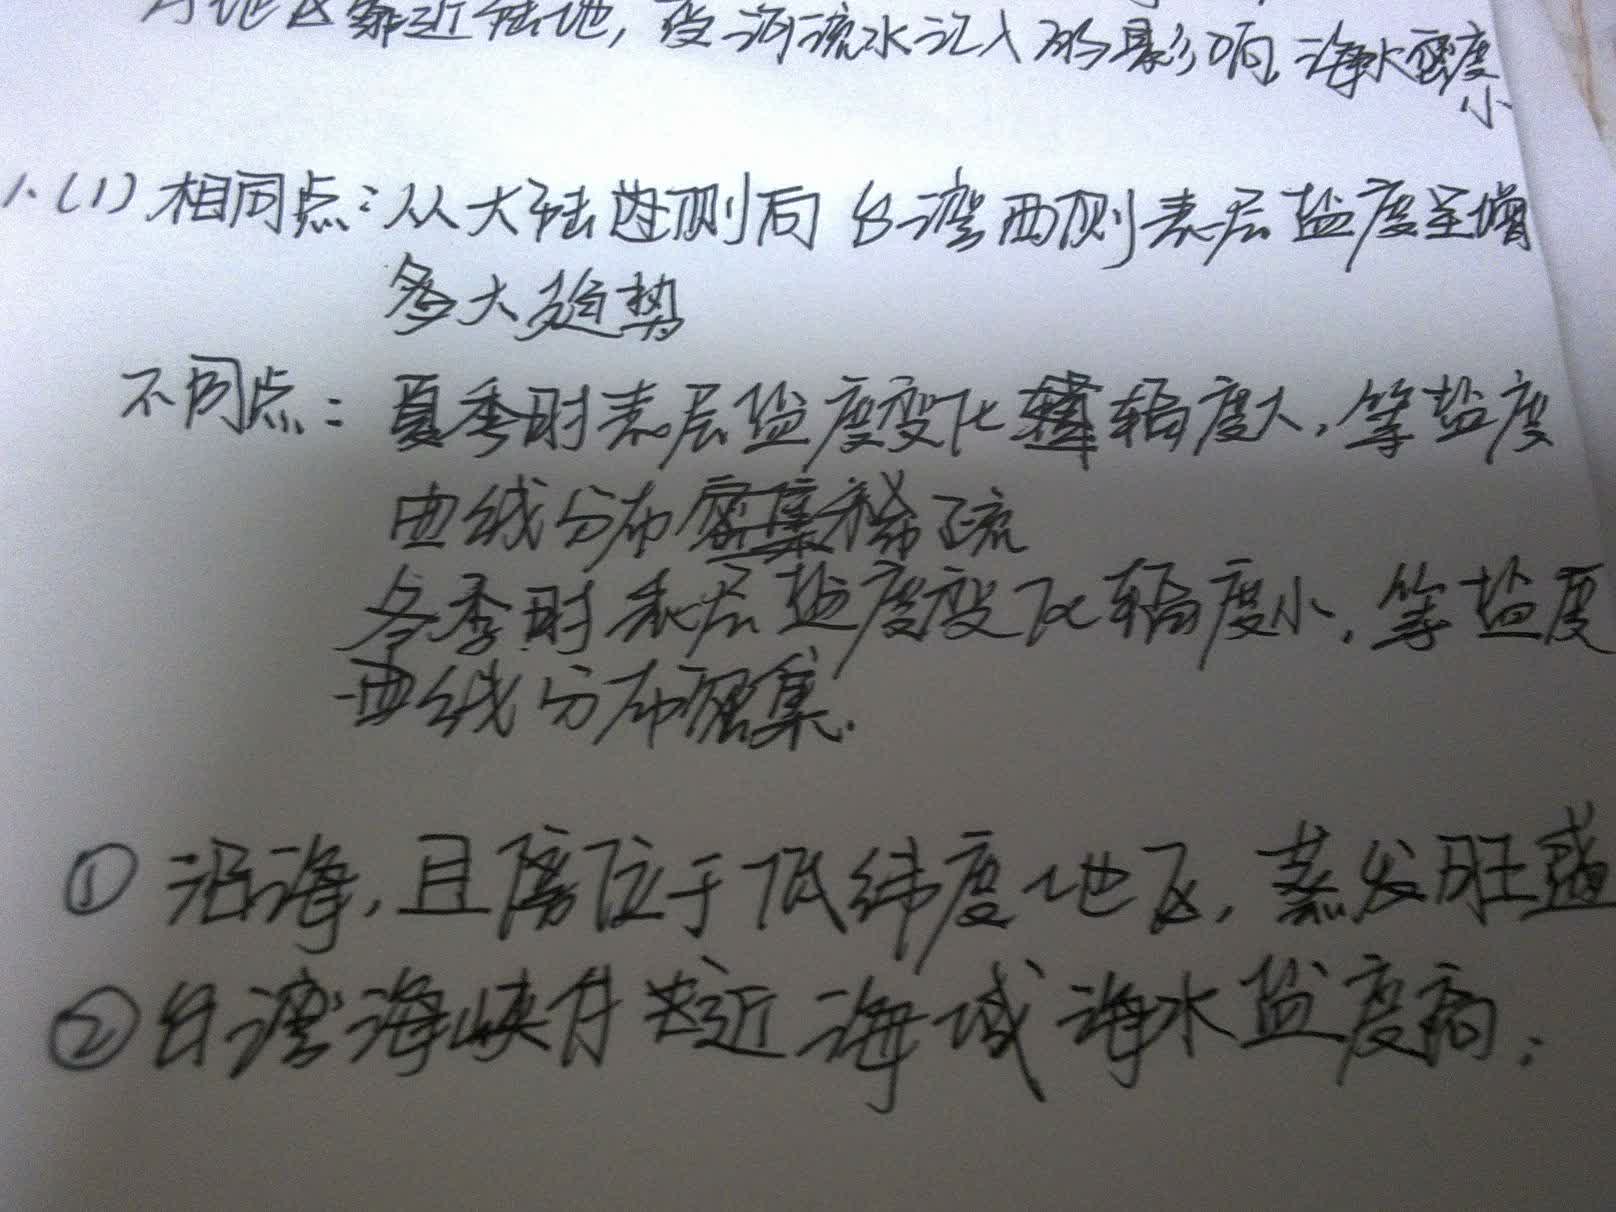 地区靠近陆地,受河流水汇入的影响,海水密度
小
1.(1)相同点:从大陆边侧向台湾西侧表层盐度呈增
多大趋势
不同点:夏季时表层盐度变化幅度大,等盐度
曲线分布稀疏
冬季时表层盐度变化幅度小,等盐度
曲线分布密集.
①沿海,且位于低纬度地区,蒸发旺盛
②台湾海峡有些近海域海水盐度高;